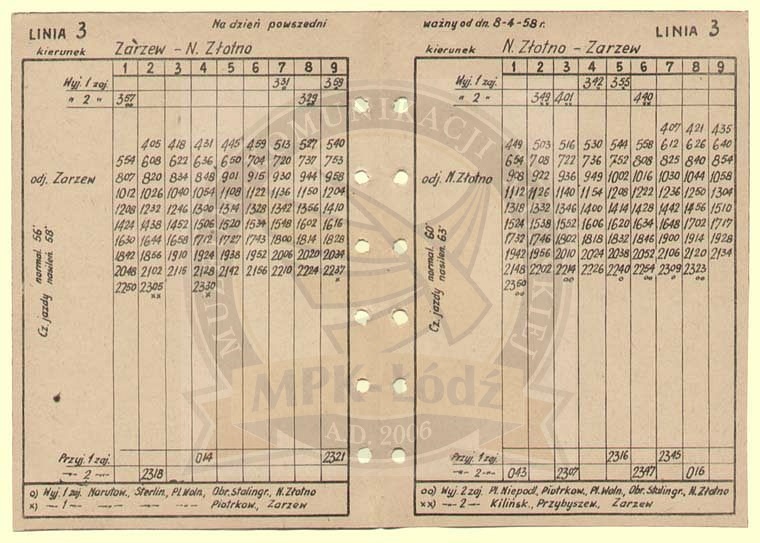 LINIA 3
Na dzień powszedni
ważny od dn. 8-4-58 r.
LINIA 3
kierunek Zarzew - N. Złotno
kierunek N. Złotno - Zarzew
1 2 3 4 5 6 7 8 9
1 2 3 4 5 6 7 8 9
Wyj. 1 zaj. 331 359
Wyj. 1 zaj. 342 355
" 2 " 357 329
" 2 " 349 401 440
407 421 435
405 418 431 445 459 513 527 540
449 503 516 530 544 558 612 626 640
554 608 622 636 650 704 720 737 753
654 708 722 736 752 808 825 840 854
odj. Zarzew 807 820 834 848 901 915 930 944 958
odj. N. Złotno 908 922 936 949 1002 1016 1030 1044 1058
1012 1026 1040 1054 1108 1122 1136 1150 1204
1112 1126 1140 1154 1208 1222 1236 1250 1304
1208 1232 1246 1300 1314 1328 1342 1356 1410
1318 1332 1346 1400 1414 1428 1442 1456 1510
1424 1438 1452 1506 1520 1534 1548 1602 1616
1524 1538 1552 1606 1620 1634 1648 1702 1717
1630 1644 1658 1712 1727 1743 1800 1814 1828
1732 1746 1802 1818 1832 1846 1900 1914 1928
1842 1856 1910 1924 1938 1952 2006 2020 2034
1942 1956 2010 2024 2038 2052 2106 2120 2134
2048 2102 2115 2128 2142 2156 2210 2224 2237
2148 2202 2214 2226 2240 2254 2309 2323
2250 2305 2330
2350
Cz. jazdy normal. 56' nasilen. 58'
Cz. jazdy normal. 60' nasilen. 63'
Przyj. 1 zaj. 014 2321
Przyj. 1 zaj. 2316 2345
-"- 2 -"- 2318
-"- 2 -"- 043 2307 2347 016
o) Wyj. 1 zaj. Narutow., Sterlin., Pl. Woln., Obr. Stalingr., N. Złotno
x) -"- 1 -"- -"- -"- -"- Piotrkow., Zarzew
oo) Wyj. 2 zaj. Pl. Niepodl., Piotrkow., Pl. Woln., Obr. Stalingr., N. Złotno
xx) -"- 2 -"- Kilińsk., Przybyszew., Zarzew
MPK-Łódź
A.D. 2006